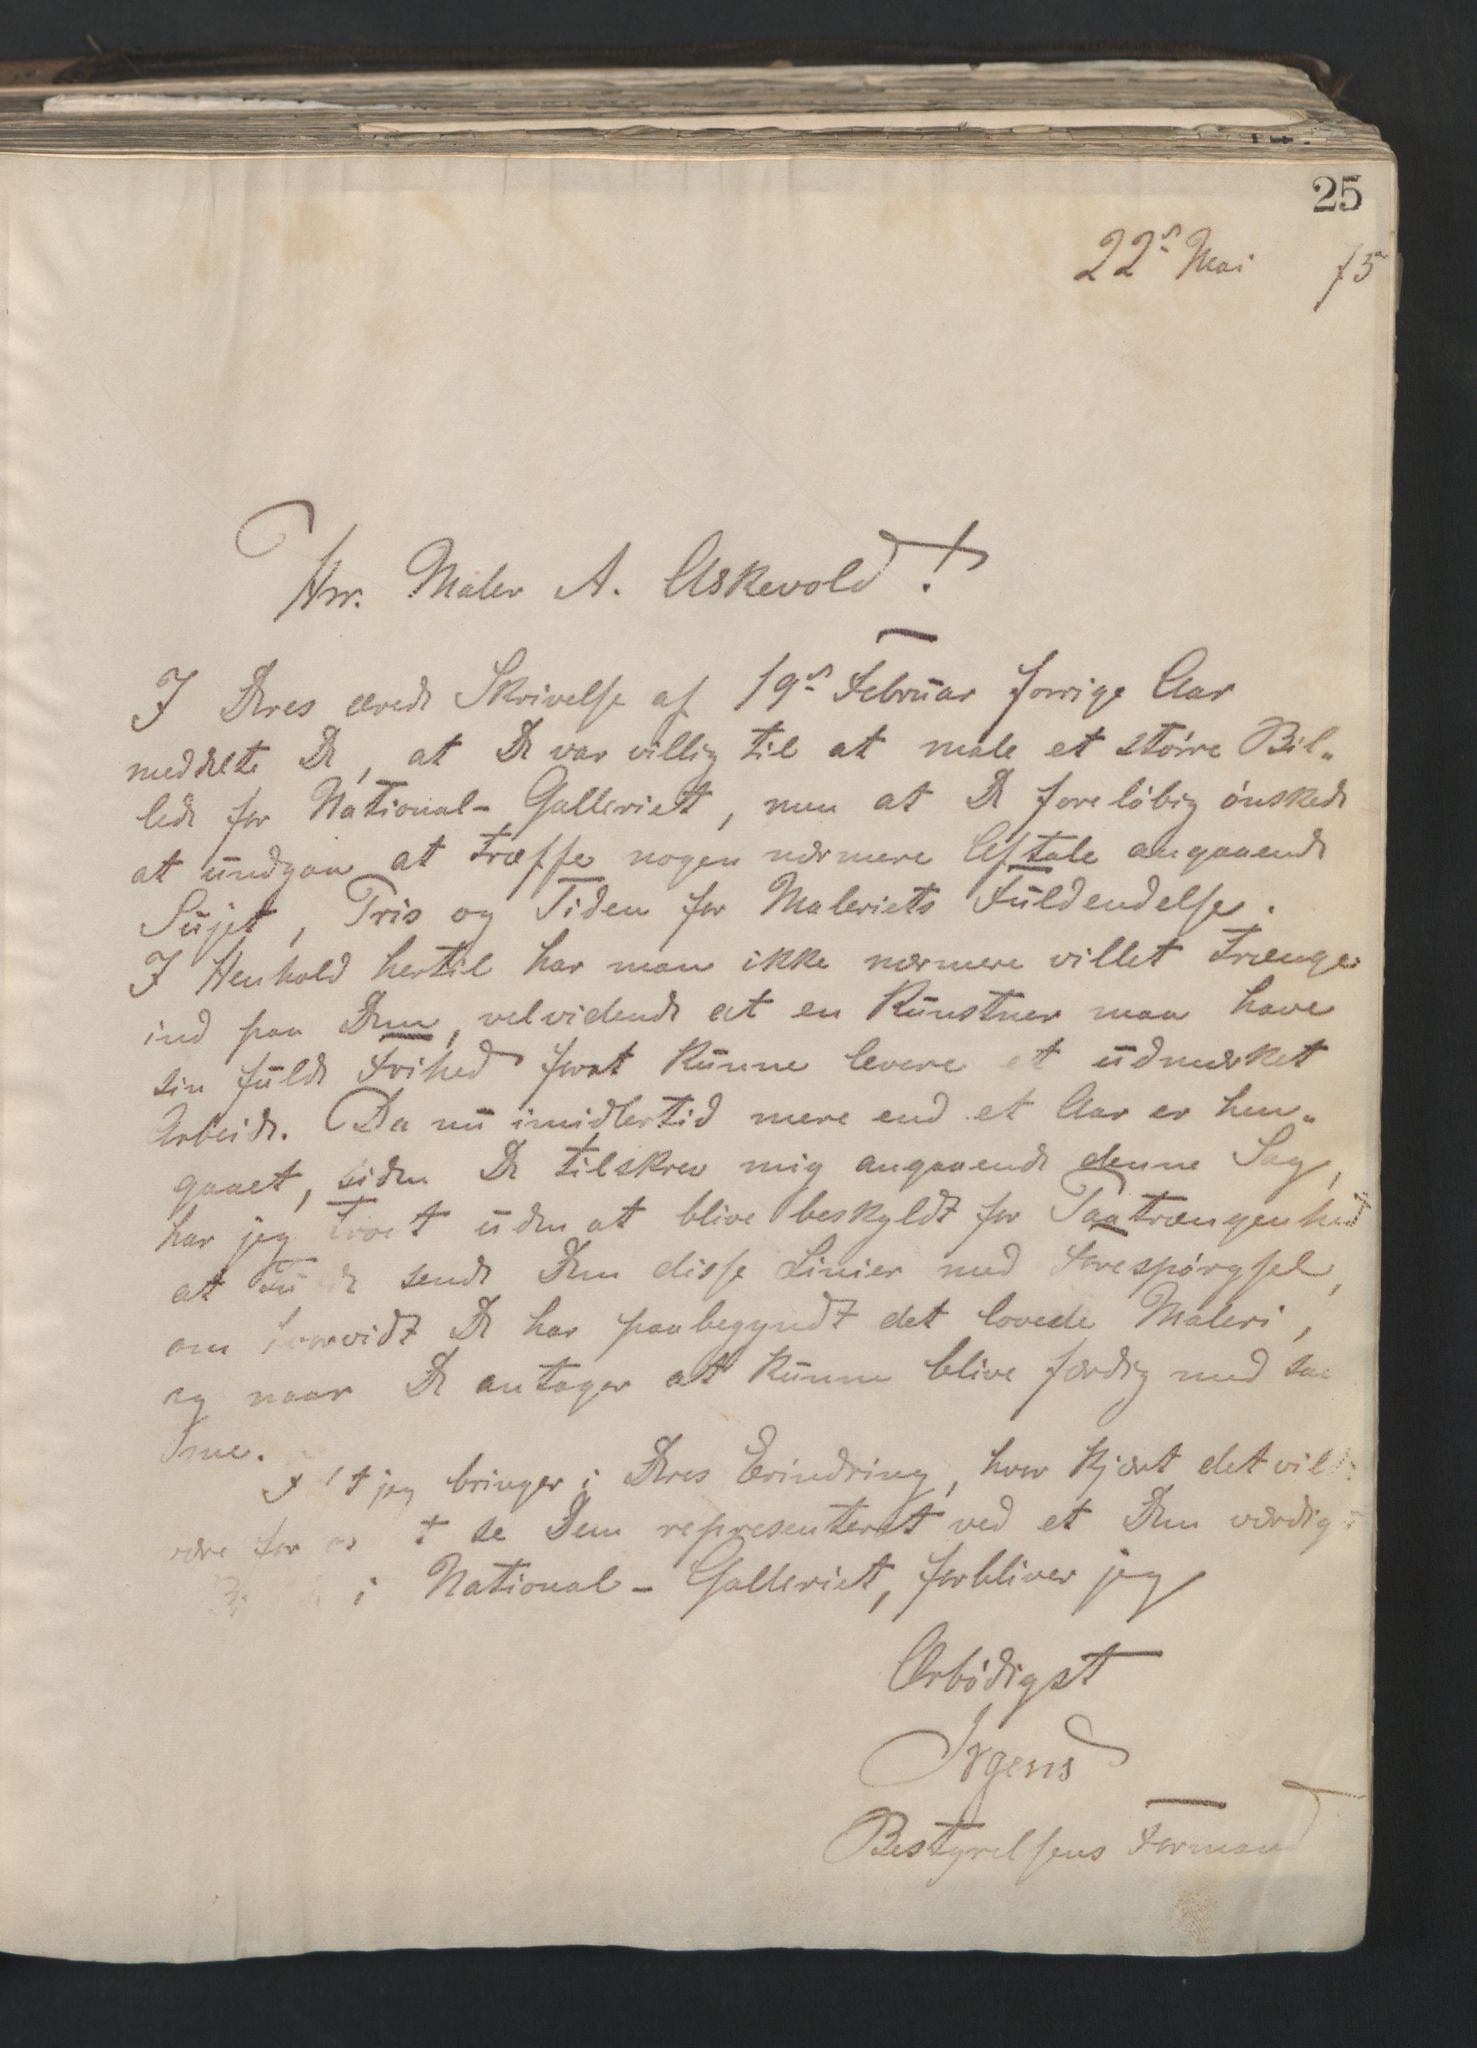 25
22de Mai 75
Hrr. Maler A. Askevold!
I Deres ærede Skrivelse af 19de Februar forrige Aar
meddelte De, at De var villig til at male et större Bil„
lede for National-Galleriet, men at De foreløbig ønskede
at undgaa at træffe nogen nærmere Aftale angaaende
Sujet, Pris og Tiden for Maleriets Fuldendelse.
I Henhold hertil har man ikke nærmere villet trænge
ind paa Dem, velvidende at en Kunstner maa have
sin fulde Frihed forat kunne levere et udmærket
Arbeide. Da nu imidlertid mere end et Aar er hen„
gaaet, siden De tilskrev mig angaaende denne Sag,
har jeg troet uden at blive beskyldt for Paatrængenhed
at sende Dem disse Linier med Forespørgsel,
om hvorvidt De har paabegyndt det lovede Maleri,
og naar De antager at kunne blive færdig med sam
me.
jeg bringer i Deres Erindring, hvor kjært det vilde
være for os at se Dem representeret ved et Dem værdigt
i National-Galleriet, forbliver jeg
Ærbødigst
Irgens
Bestyrelsens Formand